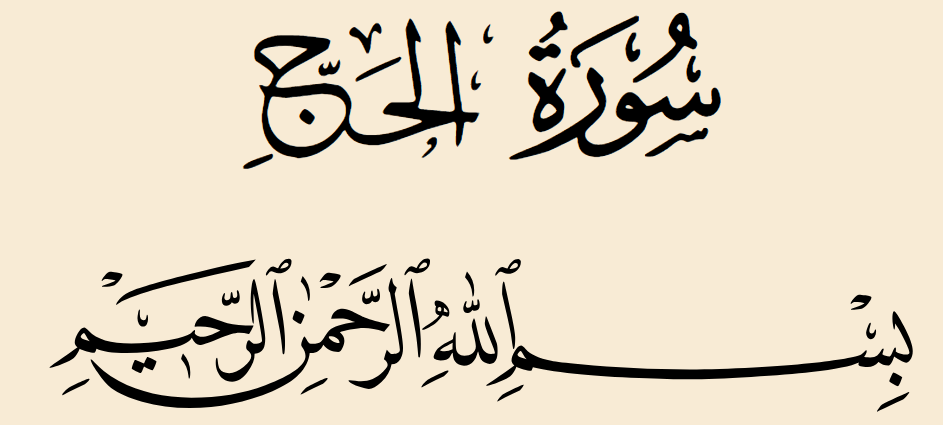 سُورَةُ الحَجِّ
بِسْمِ ٱللَّهِ ٱلرَّحْمَٰنِ ٱلرَّحِيمِ